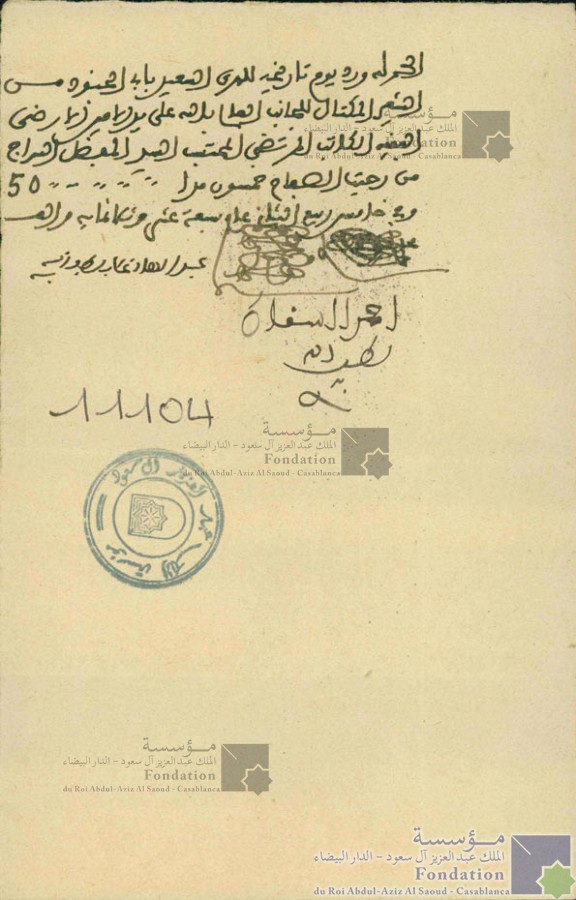 الحمد لله ورد يوم تاريخه للهري السعيد بباب الجنود من
الشعير المكتال للجانب العالي بالله على يد
الفقيه الكاتب المرتضى المحتسب السيد المفضل السراج
من رحبة الطعام خمسون مدا 50
وفي خامس ربيع الثاني عام سبعة عشر وثلاثمائة وألف
عبد
احمد السفا
11104
عبد العزيز آل سعود
مؤسسة الملك
مؤسسة
الملك عبد العزيز آل سعود - الدار البيضاء
Fondation
du Roi Abdul-Aziz Al Saoud - Casablanca
مؤسسة
الملك عبد العزيز آل سعود - الدار البيضاء
Fondation
du Roi Abdul-Aziz Al Saoud - Casablanca
مؤسسة
الملك عبد العزيز آل سعود - الدار البيضاء
Fondation
du Roi Abdul-Aziz Al Saoud - Casablanca
مؤسسة
الملك عبد العزيز آل سعود - الدار البيضاء
Fondation
du Roi Abdul-Aziz Al Saoud - Casablanca